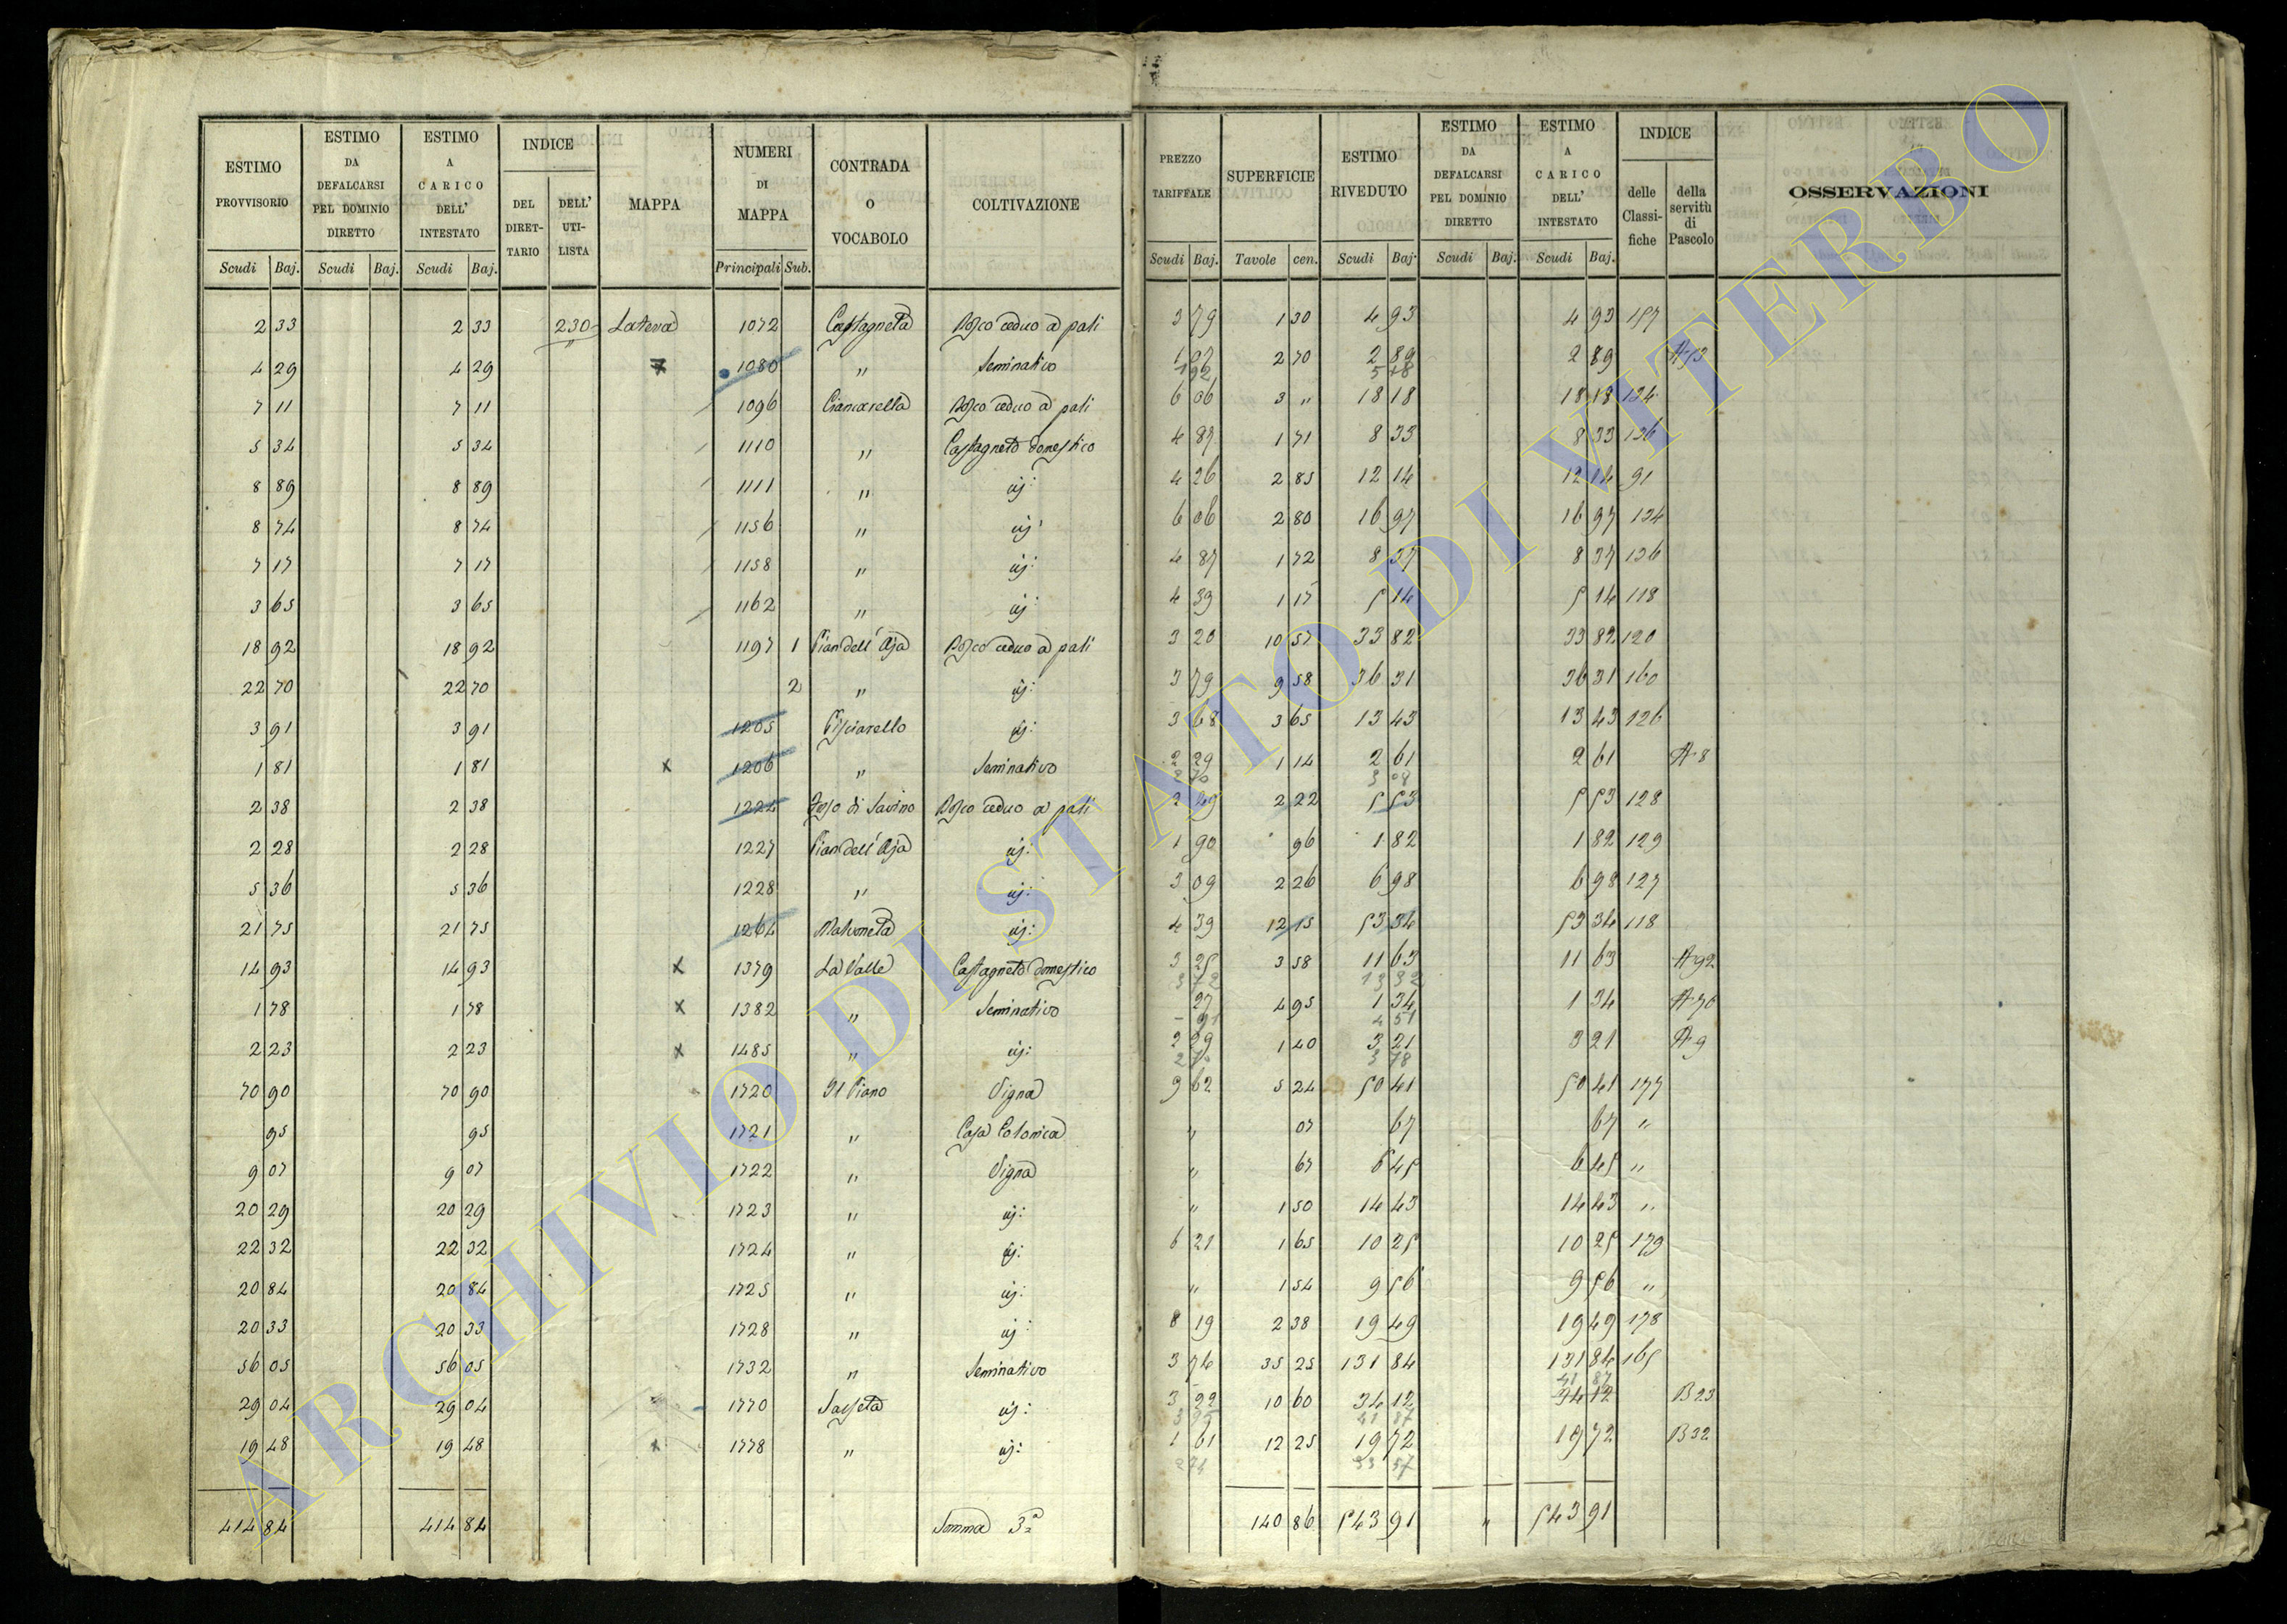 ESTIMO PROVVISORIO | ESTIMO DA DEFALCARSI PEL DOMINIO DIRETTO | ESTIMO A CARICO DELL' INTESTATO | INDICE DEL DIRETTARIO | DELL' UTILISTA | MAPPA | NUMERI DI MAPPA | CONTRADA O VOCABOLO | COLTIVAZIONE | PREZZO TARIFFALE | SUPERFICIE | ESTIMO RIVEDUTO | ESTIMO DA DEFALCARSI PEL DOMINIO DIRETTO | ESTIMO A CARICO DELL' INTESTATO | INDICE delle Classifiche | della servitù di Pascolo | OSSERVAZIONI
Scudi Baj. | Scudi Baj. | Scudi Baj. | Principali Sub. | Scudi Baj. | Tavole cen. | Scudi Baj. | Scudi Baj. | Scudi Baj.
2 33 | 2 33 | 230 | Latera | 1072 | Castagneta | Bosco ceduo a pali | 3 79 | 1 30 | 4 93 | 4 93 | 157
4 29 | 4 29 | x | 1080 | " | Seminativo | 1 07 | 2 70 | 2 89 | 2 89 | A 53
1 92 | 5 18
7 11 | 7 11 | 1096 | Ciancarella | Bosco ceduo a pali | 6 06 | 3 " | 18 18 | 18 18 | 124
5 34 | 5 34 | 1110 | " | Castagneto domestico | 4 87 | 1 71 | 8 33 | 8 33 | 126
8 89 | 8 89 | 1111 | " | id: | 4 26 | 2 85 | 12 14 | 12 14 | 91
8 74 | 8 74 | 1156 | " | id: | 6 06 | 2 80 | 16 97 | 16 97 | 124
7 17 | 7 17 | 1158 | " | id: | 4 87 | 1 72 | 8 37 | 8 37 | 126
3 65 | 3 65 | 1162 | " | id: | 4 39 | 1 17 | 5 14 | 5 14 | 118
18 92 | 18 92 | 1197 | 1 | Pian dell'Aja | Bosco ceduo a pali | 3 20 | 10 57 | 33 82 | 33 82 | 120
22 70 | 22 70 | 2 | " | id: | 3 79 | 9 58 | 36 31 | 36 31 | 160
3 91 | 3 91 | 1205 | Pisciarello | id: | 3 68 | 3 65 | 13 43 | 13 43 | 126
1 81 | 1 81 | x | 1206 | " | Seminativo | 2 29 | 1 14 | 2 61 | 2 61 | A 8
2 70 | 3 08
2 38 | 2 38 | 1224 | Fosso di Savino | Bosco ceduo a pali | 2 49 | 2 22 | 5 53 | 5 53 | 128
2 28 | 2 28 | 1227 | Pian dell'Aja | id: | 1 90 | 96 | 1 82 | 1 82 | 129
5 36 | 5 36 | 1228 | " | id: | 3 09 | 2 26 | 6 98 | 6 98 | 127
21 75 | 21 75 | 1264 | Malvoneta | id: | 4 39 | 12 15 | 53 34 | 53 34 | 118
14 93 | 14 93 | x | 1379 | La Valle | Castagneto domestico | 3 25 | 3 58 | 11 63 | 11 63 | A 92
3 72 | 13 32
1 78 | 1 78 | x | 1382 | " | Seminativo | 27 | 4 95 | 1 34 | 1 34 | A 70
- 91 | 4 51
2 23 | 2 23 | x | 1485 | " | id: | 2 29 | 1 40 | 3 21 | 3 21 | A 9
2 70 | 3 78
70 90 | 70 90 | 1720 | Il Piano | Vigna | 9 62 | 5 24 | 50 41 | 50 41 | 177
95 | 95 | 1721 | " | Casa Colonica | " | 07 | 67 | 67 | "
9 07 | 9 07 | 1722 | " | Vigna | " | 67 | 6 45 | 6 45 | "
20 29 | 20 29 | 1723 | " | id: | " | 1 50 | 14 43 | 14 43 | "
22 32 | 22 32 | 1724 | " | id: | 6 21 | 1 65 | 10 25 | 10 25 | 179
20 84 | 20 84 | 1725 | " | id: | " | 1 54 | 9 56 | 9 56 | "
20 33 | 20 33 | 1728 | " | id: | 8 19 | 2 38 | 19 49 | 19 49 | 178
56 05 | 56 05 | 1732 | " | Seminativo | 3 74 | 35 25 | 131 84 | 131 84 | 165
41 87
29 04 | 29 04 | 1770 | Sasseta | id: | 3 22 | 10 60 | 34 12 | 34 12 | B 23
3 95 | 41 87
19 48 | 19 48 | x | 1778 | " | id: | 1 61 | 12 25 | 19 72 | 19 72 | B 32
2 74 | 33 57
414 84 | 414 84 | Somma 3ª | 140 86 | 543 91 | " | 543 91
ARCHIVIO DI STATO DI VITERBO